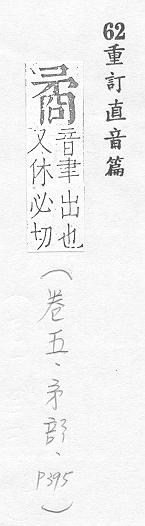 62重訂直音篇
音聿出也
又休必切
(卷五、矛部、P395)